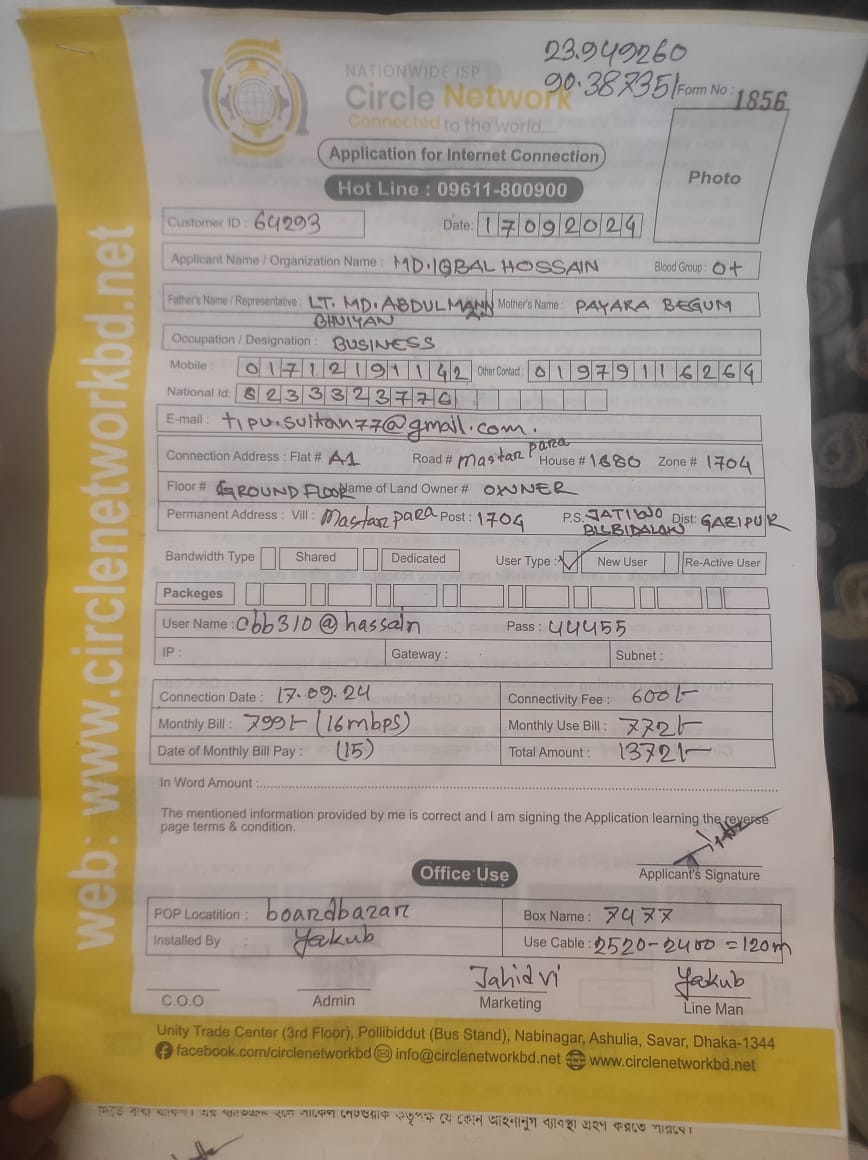 23.949260
90.387351
NATIONWIDE ISP
Circle Network
Connected to the world....
Form No : 1856
Application for Internet Connection
Photo
Hot Line : 09611-800900
Customer ID : 64293 Date: 17092024
Applicant Name / Organization Name : MD.IQBAL HOSSAIN Blood Group : O+
Father's Name / Representative : LT. MD. ABDUL MANNAN Mother's Name : PAYARA BEGUM
BHUIYAN
Occupation / Designation : BUSINESS
Mobile : 01712191142 Other Contact : 01979116264
National Id: 8233323776
E-mail : tipu.sultan77@gmail.com.
Connection Address : Flat # A1 Road # mastar para House # 1680 Zone # 1704
Floor # GROUND FLOOR Name of Land Owner # OWNER
Permanent Address : Vill : Mastar para Post : 1704 P.S. JATIYO Dist: GAZIPUR
Bandwidth Type Shared Dedicated User Type : New User Re-Active User
Packeges
User Name : cbb310@hassain Pass : 44455
IP : Gateway : Subnet :
Connection Date : 17.09.24 Connectivity Fee : 600/-
Monthly Bill : 799/- (16mbps) Monthly Use Bill : 772/-
Date of Monthly Bill Pay : (15) Total Amount : 1372/-
In Word Amount :
The mentioned information provided by me is correct and I am signing the Application learning the reverse
page terms & condition.
Applicant's Signature
Office Use
POP Locatition : boardbazar Box Name : 7477
Installed By : Yakub Use Cable : 2520-2400 = 120m
Jahid vi Yakub
C.O.O Admin Marketing Line Man
Unity Trade Center (3rd Floor), Pollibiddut (Bus Stand), Nabinagar, Ashulia, Savar, Dhaka-1344
facebook.com/circlenetworkbd info@circlenetworkbd.net www.circlenetworkbd.net
web: www.circlenetworkbd.net
যে কোন আইনানুগ ব্যাবস্থা গ্রহণ করতে পারবে।